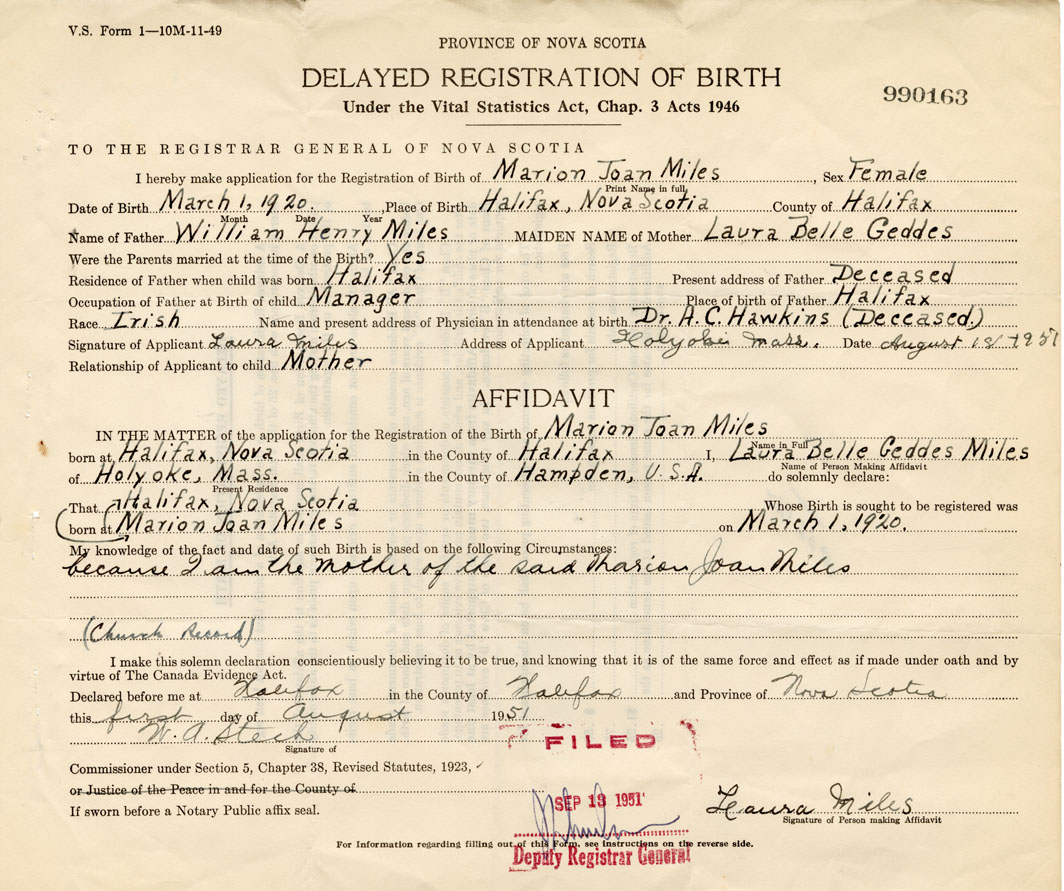 V.S. Form 1—10M-11-49
PROVINCE OF NOVA SCOTIA
DELAYED REGISTRATION OF BIRTH
990163
Under the Vital Statistics Act, Chap. 3 Acts 1946
TO THE REGISTRAR GENERAL OF NOVA SCOTIA
I hereby make application for the Registration of Birth of Marion Joan Miles, Sex Female
Print Name in full
Date of Birth March 1, 1920. ,Place of Birth Halifax, Nova Scotia County of Halifax
Month Date Year
Name of Father William Henry Miles MAIDEN NAME of Mother Laura Belle Geddes
Were the Parents married at the time of the Birth? Yes
Residence of Father when child was born Halifax Present address of Father Deceased
Occupation of Father at Birth of child Manager Place of birth of Father Halifax
Race Irish Name and present address of Physician in attendance at birth Dr. A.C. Hawkins (Deceased.)
Signature of Applicant Laura Miles Address of Applicant Holyoke Mass. Date August
Relationship of Applicant to child Mother
AFFIDAVIT
IN THE MATTER of the application for the Registration of the Birth of Marion Joan Miles
Name in Full
born at Halifax, Nova Scotia in the County of Halifax I, Laura Belle Geddes Miles
Name of Person Making Affidavit
of Holyoke, Mass. in the County of Hampden, U.S.A. do solemnly declare:
Present Residence
That Halifax, Nova Scotia Whose Birth is sought to be registered was
born at Marion Joan Miles on March 1, 1920.
My knowledge of the fact and date of such Birth is based on the following Circumstances:
because I am the Mother of the said Marion Joan Miles
(Church Record)
I make this solemn declaration conscientiously believing it to be true, and knowing that it is of the same force and effect as if made under oath and by
virtue of The Canada Evidence Act.
Declared before me at Halifax in the County of Halifax and Province of Nova Scotia
this first day of August 1951
W. A.
Signature of
FILED
Commissioner under Section 5, Chapter 38, Revised Statutes, 1923,
or Justice of the Peace in and for the County of
SEP 13 1951
If sworn before a Notary Public affix seal.
Laura Miles
Signature of Person making Affidavit
For Information regarding filling out of this Form, see instructions on the reverse side.
Deputy Registrar General